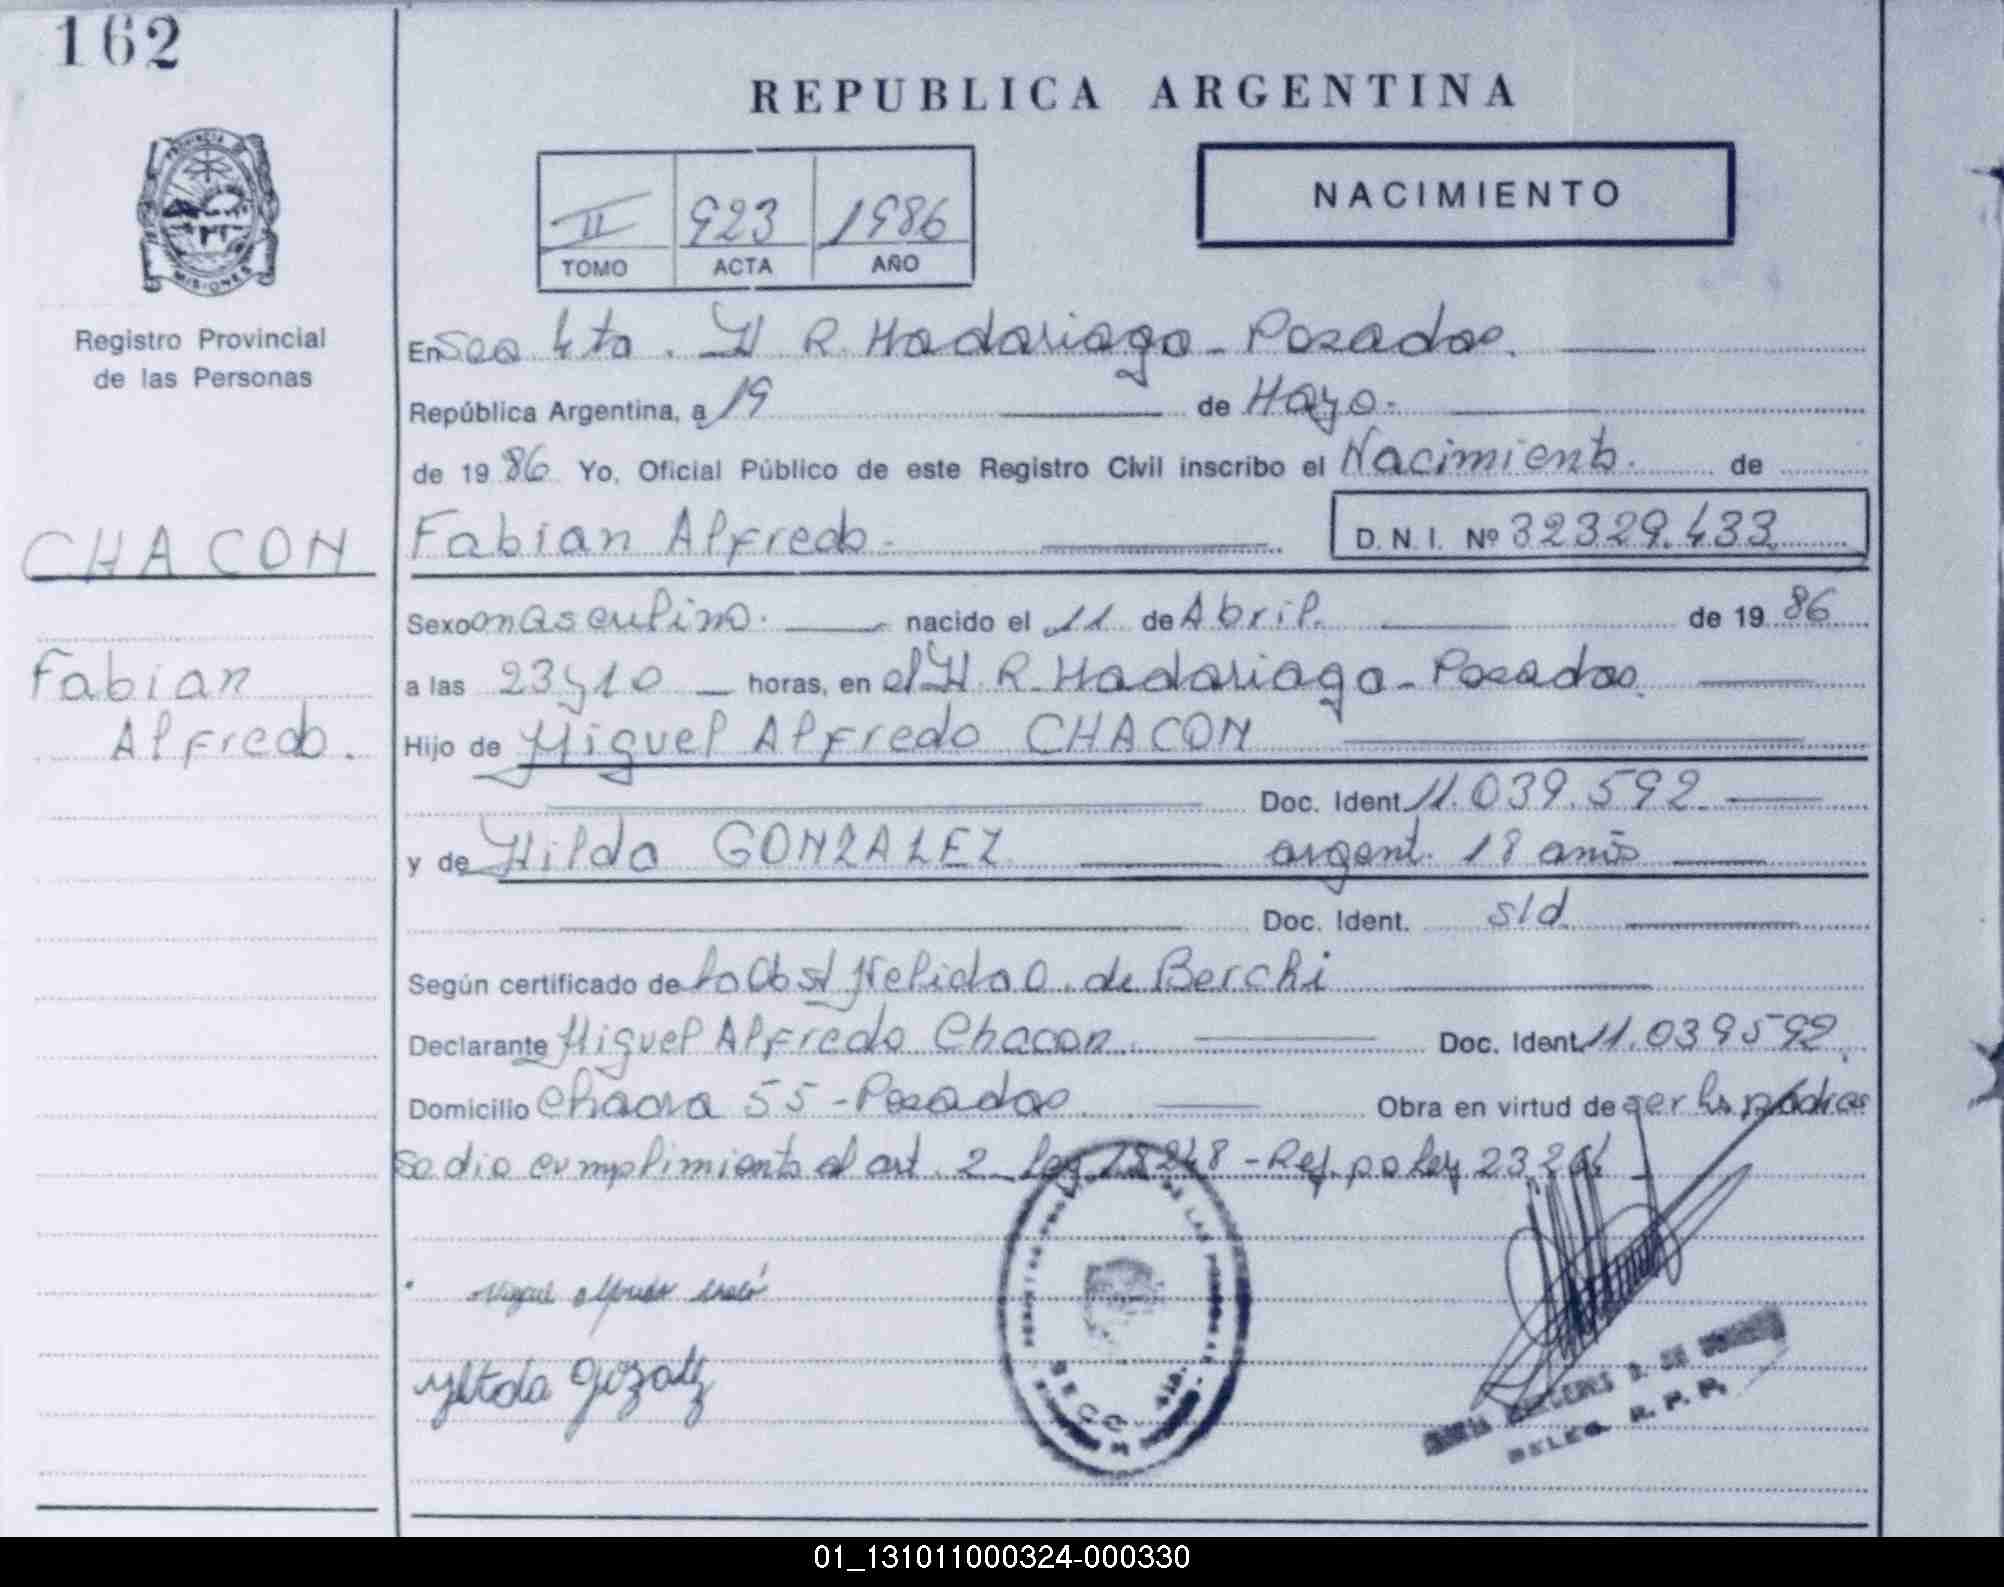 162
REPUBLICA ARGENTINA
PROVINCIA DE MISIONES
II 923 1986
TOMO ACTA AÑO
NACIMIENTO
Registro Provincial
de las Personas
En Sec 4ta. H R. Madariaga - Posadas.
República Argentina, a 19 de Mayo.
de 19 86 Yo, Oficial Público de este Registro Civil inscribo el Nacimiento. de
CHACON
Fabian Alfredo
Fabian Alfredo. D. N. I. Nº 32329.433
Sexo masculino. nacido el 11 de Abril. de 19 86
a las 23 y 10 horas, en el H. R. Madariaga - Posadas.
Hijo de Miguel Alfredo CHACON
Doc. Ident. 11.039.592
y de Hilda GONZALEZ argent. 18 años
Doc. Ident. s/d
Según certificado de la Obst Nelida O. de Berchi
Declarante Miguel Alfredo Chacon Doc. Ident. 11.039592.
Domicilio Chacra 55 - Posadas Obra en virtud de ser los padres
se dio cumplimiento al art. 2 Ley 18248 - Ref. po Ley 23264
DELEG. R. P. P.
01_131011000324-000330